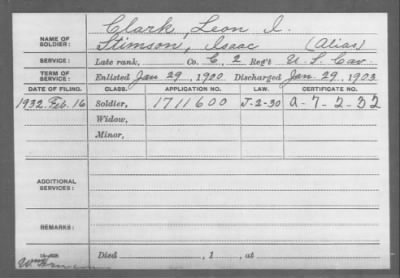 NAME OF SOLDIER: Clark, Leon I.
Stimson, Isaac (Alias)
SERVICE: Late rank, Co. C, 2 Reg't U. S. Cav.
TERM OF SERVICE: Enlisted Jan. 29, 1900. Discharged Jan. 29, 1903
DATE OF FILING. CLASS. APPLICATION NO. LAW. CERTIFICATE NO.
1932 Feb. 16 Soldier, 1711600 J-2-30 A-7-2-32
Widow,
Minor,
ADDITIONAL SERVICES:
REMARKS:
Died , 1 , at